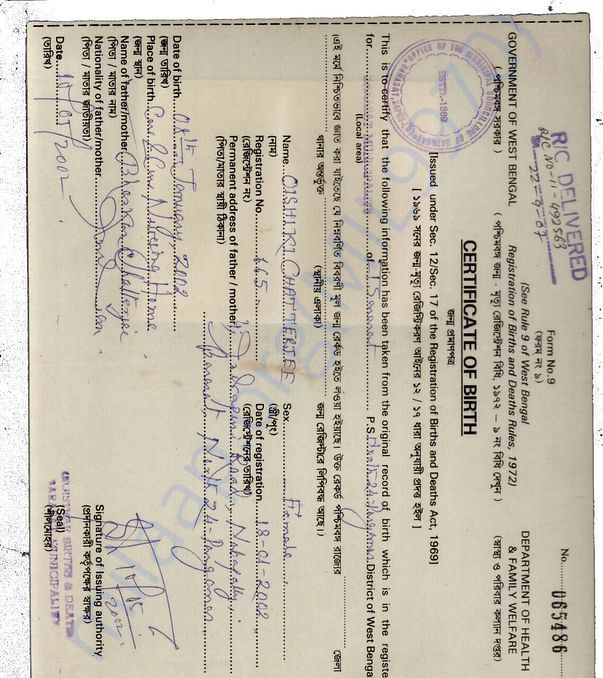 No. 065486
Form No.9
(ফরম নং ৯)
(See Rule 9 of West Bengal
Registration of Births and Deaths Rules, 1972)
( পশ্চিমবঙ্গ জন্ম - মৃত্যু রেজিস্ট্রেশন বিধি, ১৯৭২ – ৯ নং বিধি দেখুন )
R/C DELIVERED
R/C NO-11-492563
22-9-07
GOVERNMENT OF WEST BENGAL
( পশ্চিমবঙ্গ সরকার )
DEPARTMENT OF HEALTH
& FAMILY WELFARE
(স্বাস্থ্য ও পরিবার কল্যান দপ্তর)
CERTIFICATE OF BIRTH
জন্ম প্রমাণপত্র
[Issued under Sec. 12/Sec. 17 of the Registration of Births and Deaths Act, 1969]
[ ১৯৬৯ সনের জন্ম মৃত্যু রেজিস্ট্রিকরণ আইনের ১২ / ১৭ ধারা অনুযায়ী প্রদত্ত হইল ]
OFFICE OF THE MUNICIPAL COUNCILLORS OF
ESTD.-1869
This is to certify that the following information has been taken from the original record of birth which is in the registe
for of Barasat P.S. North 24-Parganas District of West Benga
(Local area)
এই মর্মে নিশ্চিতভাবে জ্ঞাত করা যাইতেছে যে নিম্নবর্ণিত বিবরণী মূল জন্ম রেকর্ড হইতে লওয়া হইয়াছে। উক্ত রেকর্ড পশ্চিমবঙ্গ রাজ্যের জেলা
থানার অন্তর্ভুক্ত (স্থানীয় এলাকা) জন্ম রেজিস্টারে লিপিবদ্ধ আছে।।
Name OISHIKI CHATTERJEE Sex Female
(নাম) (স্ত্রী/পুং)
Registration No. 665 Date of registration 18-01-2002
(রেজিস্ট্রেশন নং) (রেজিস্ট্রেশনের তারিখ)
Permanent address of father / mother Road, Nabapally,
(পিতা/মাতার স্থায়ী ঠিকানা) Barasat, North 24 Parganas
Date of birth 08th January, 2002
(জন্ম তারিখ)
Place of birth Nursing Home
(জন্ম স্থান)
Name of father/mother Bhaskar Chatterjee
(পিতা / মাতার নাম)
Nationality of father/mother Indian
(পিতা / মাতার জাতীয়তা)
Date 2002
(তারিখ)
Signature of Issuing authority
(প্রদানকারী কর্তৃপক্ষের স্বাক্ষর)
(Seal)
(শীলমোহর)
BIRTHS & DEATH
MUNICIPALITY